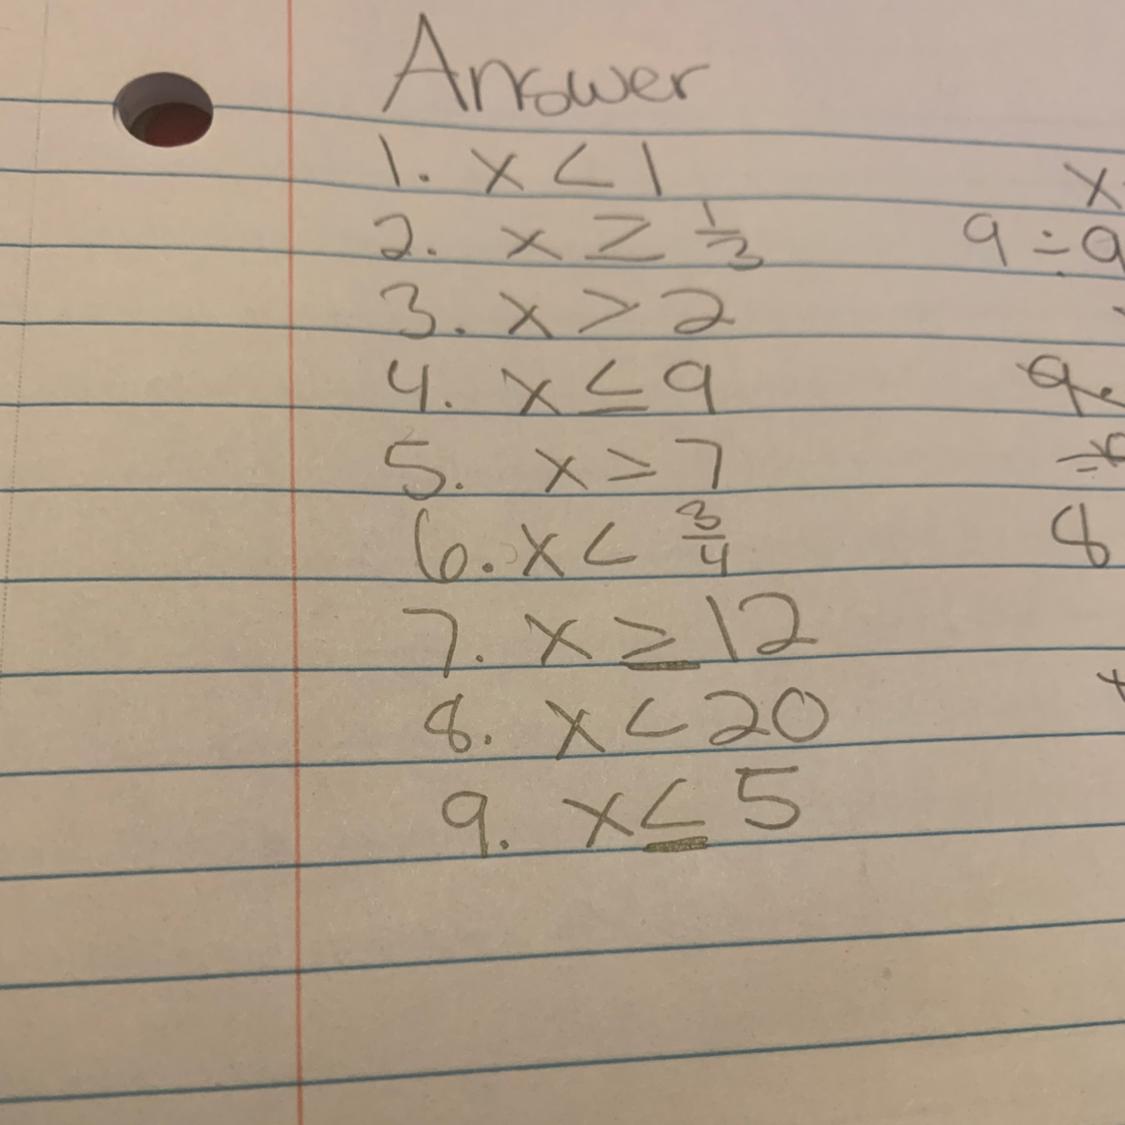 Answer
1. x < 1
2. x ≥ 1/3
3. x > 2
4. x ≤ 9
5. x ≥ 7
6. x < 3/4
7. x ≥ 12
8. x < 20
9. x ≤ 5
x
9 ÷ 9
9
8